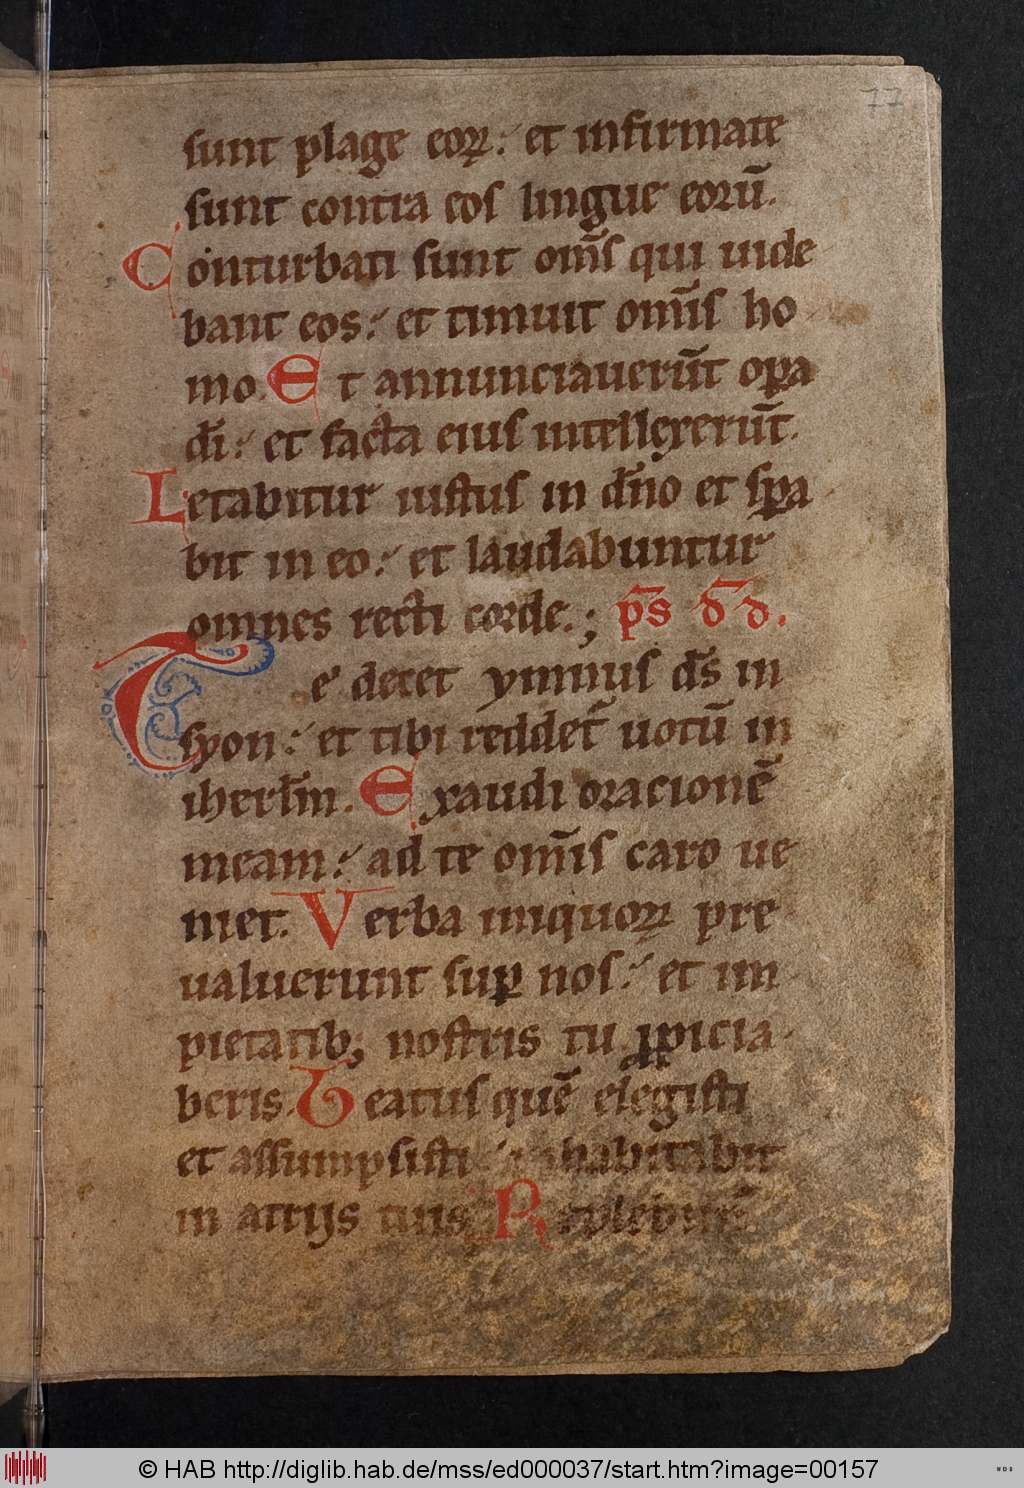 77
sunt plage eoꝝ: et infirmate
sunt contra eos lingue eorū.
Conturbati sunt om̄s qui uide
bant eos: et timuit om̄is ho
mo. Et annunciauerūt oꝑa
dī: et facta eius intellexerūt.
Letabitur iustus in dn̄o et sꝑa
bit in eo: et laudabuntur
omnes recti corde.; p̄s d̄d.
Te decet ymnus ds̄ in
syon: et tibi reddet᷑ uotū in
iherl̄m. Exaudi oracionē
meam: ad te om̄is caro ue
niet. Verba iniquoꝝ pre
ualuerunt suꝑ nos: et im
pietatib; nostris tu ꝓpicia
beris. Beatus quē elegisti
et assumpsisti inhabitabit
in atrijs tuis Replebim᷑
© HAB http://diglib.hab.de/mss/ed000037/start.htm?image=00157